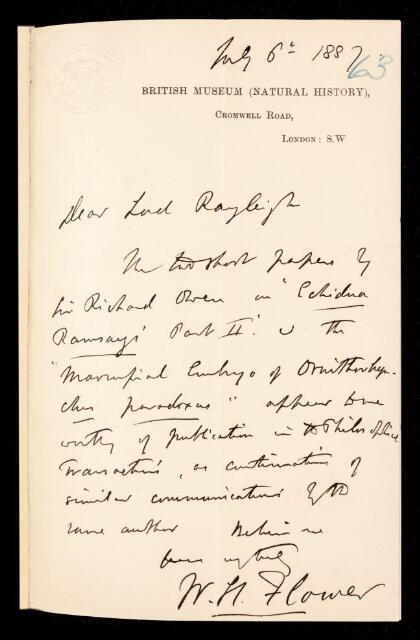 July 6th 1887
63
BRITISH MUSEUM (NATURAL HISTORY),
CROMWELL ROAD,
LONDON: S.W
Dear Lord Rayleigh
The two short papers by
Sir Richard Owen on "Echidna
Ramsayi Part II". & the
"Marsupial Embryo of Ornithorhyn-
chus paradoxus" appear to me
worthy of publication in the Philosophical
Transactions, as continuations of
similar communications by the
same author Believe me
yours very truly
W. H. Flower